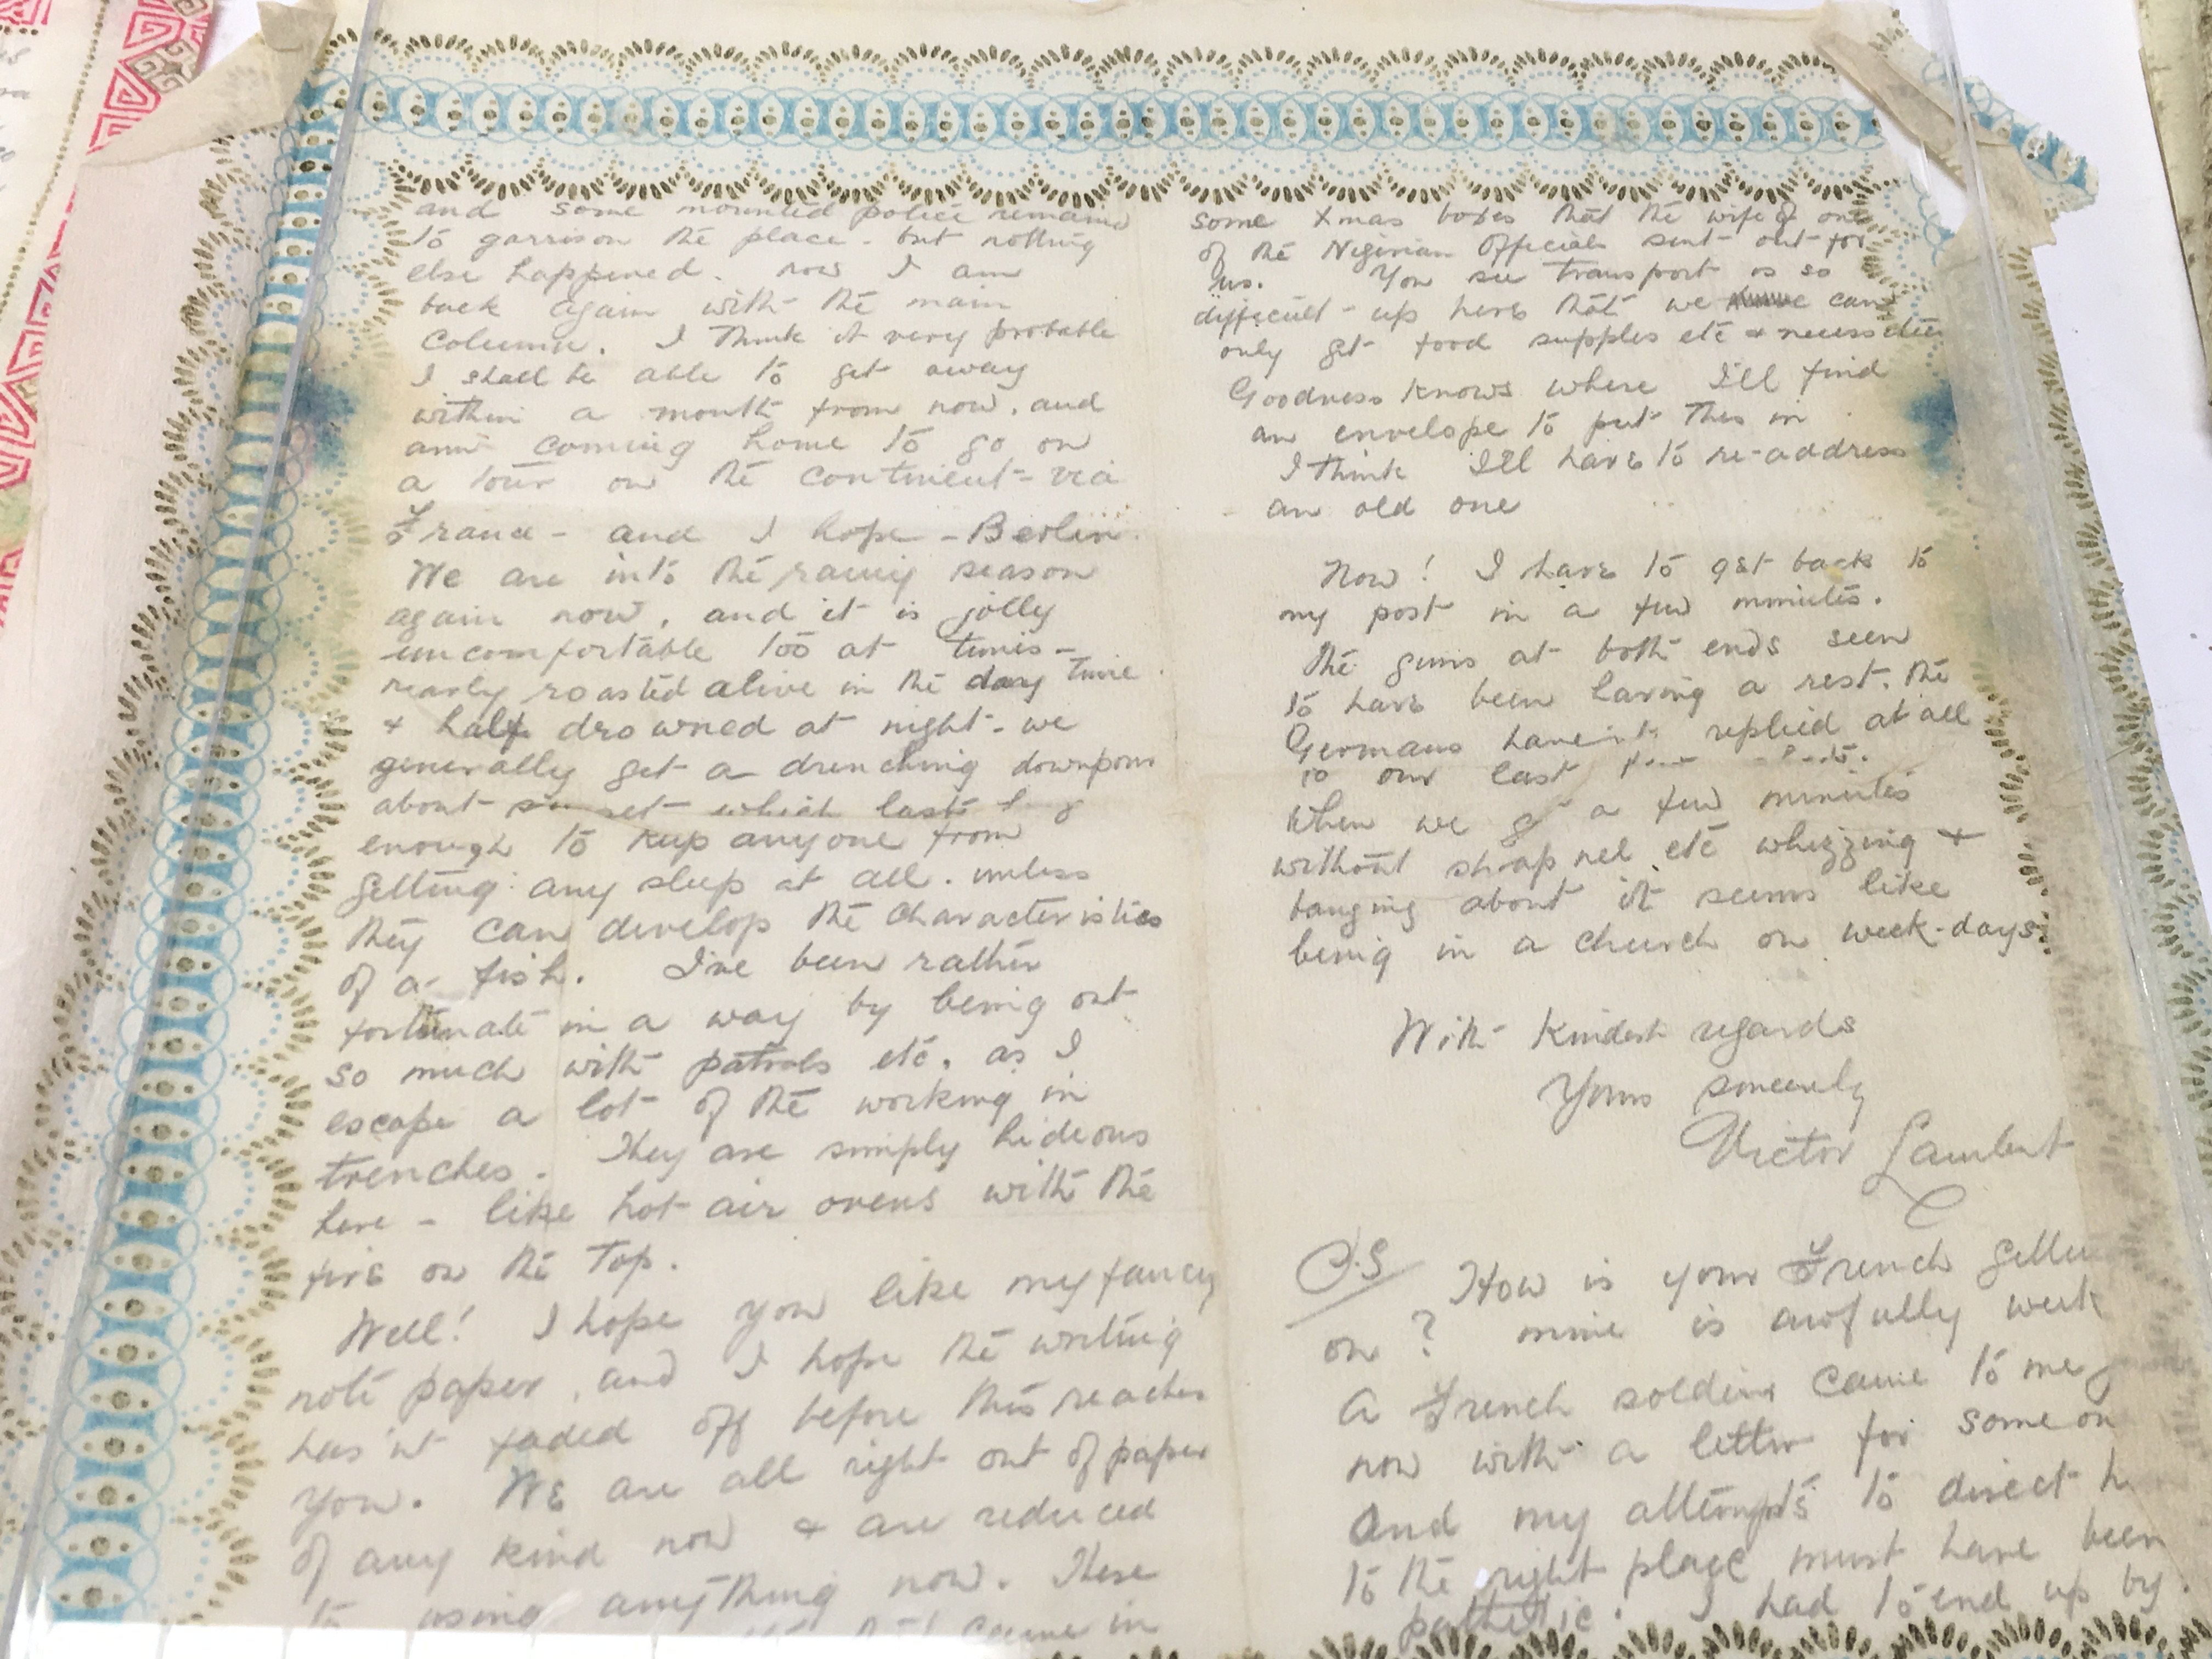 and some mounted police remained
to garrison the place - but nothing
else happened. now I am
back again with the main
Column. I think it very probable
I shall be able to get away
within a month from now. and
am coming home to go on
a tour on the continent - via
France - and I hope - Berlin.
We are into the rainy season
again now, and it is jolly
uncomfortable too at times -
nearly roasted alive in the day time
& half drowned at night - we
generally get a drenching downpour
about sunset which lasts long
enough to keep anyone from
getting any sleep at all. unless
they can develop the characteristics
of a fish. I've been rather
fortunate in a way by being out
so much with patrols etc. as I
escape a lot of the working in
trenches. They are simply hideous
here - like hot air ovens with the
fire on the top.
Well! I hope you like my fancy
note paper, and I hope the writing
has'nt faded off before this reaches
you. We are all right out of paper
of any kind now & are reduced
to using anything now. These
came in
some Xmas boxes that the wife of one
of the Nigerian Officials sent out for
us. You see transport is so
difficult - up here that we can
only get food supples etc & necessities
Goodness knows where I'll find
an envelope to put this in
I think I'll have to re-address
an old one
Now! I have to get back to
my post in a few minutes.
The guns at both ends seem
to have been having a rest. The
Germans haven't replied at all
to our last
When we a few minutes
without shrapnel etc whizzing &
banging about it seems like
being in a church on week-days.
With Kindest regards
Yours sincerely
Victor Lambert
P.S How is your French
on? mine is awfully
A French soldier came to me
now with a letter for
And my attempts to direct
to the right place must have been
pathetic. I had to end up by